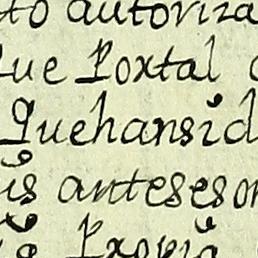 to autoriza
que Portal
Quehansid
is antesesor
Propia